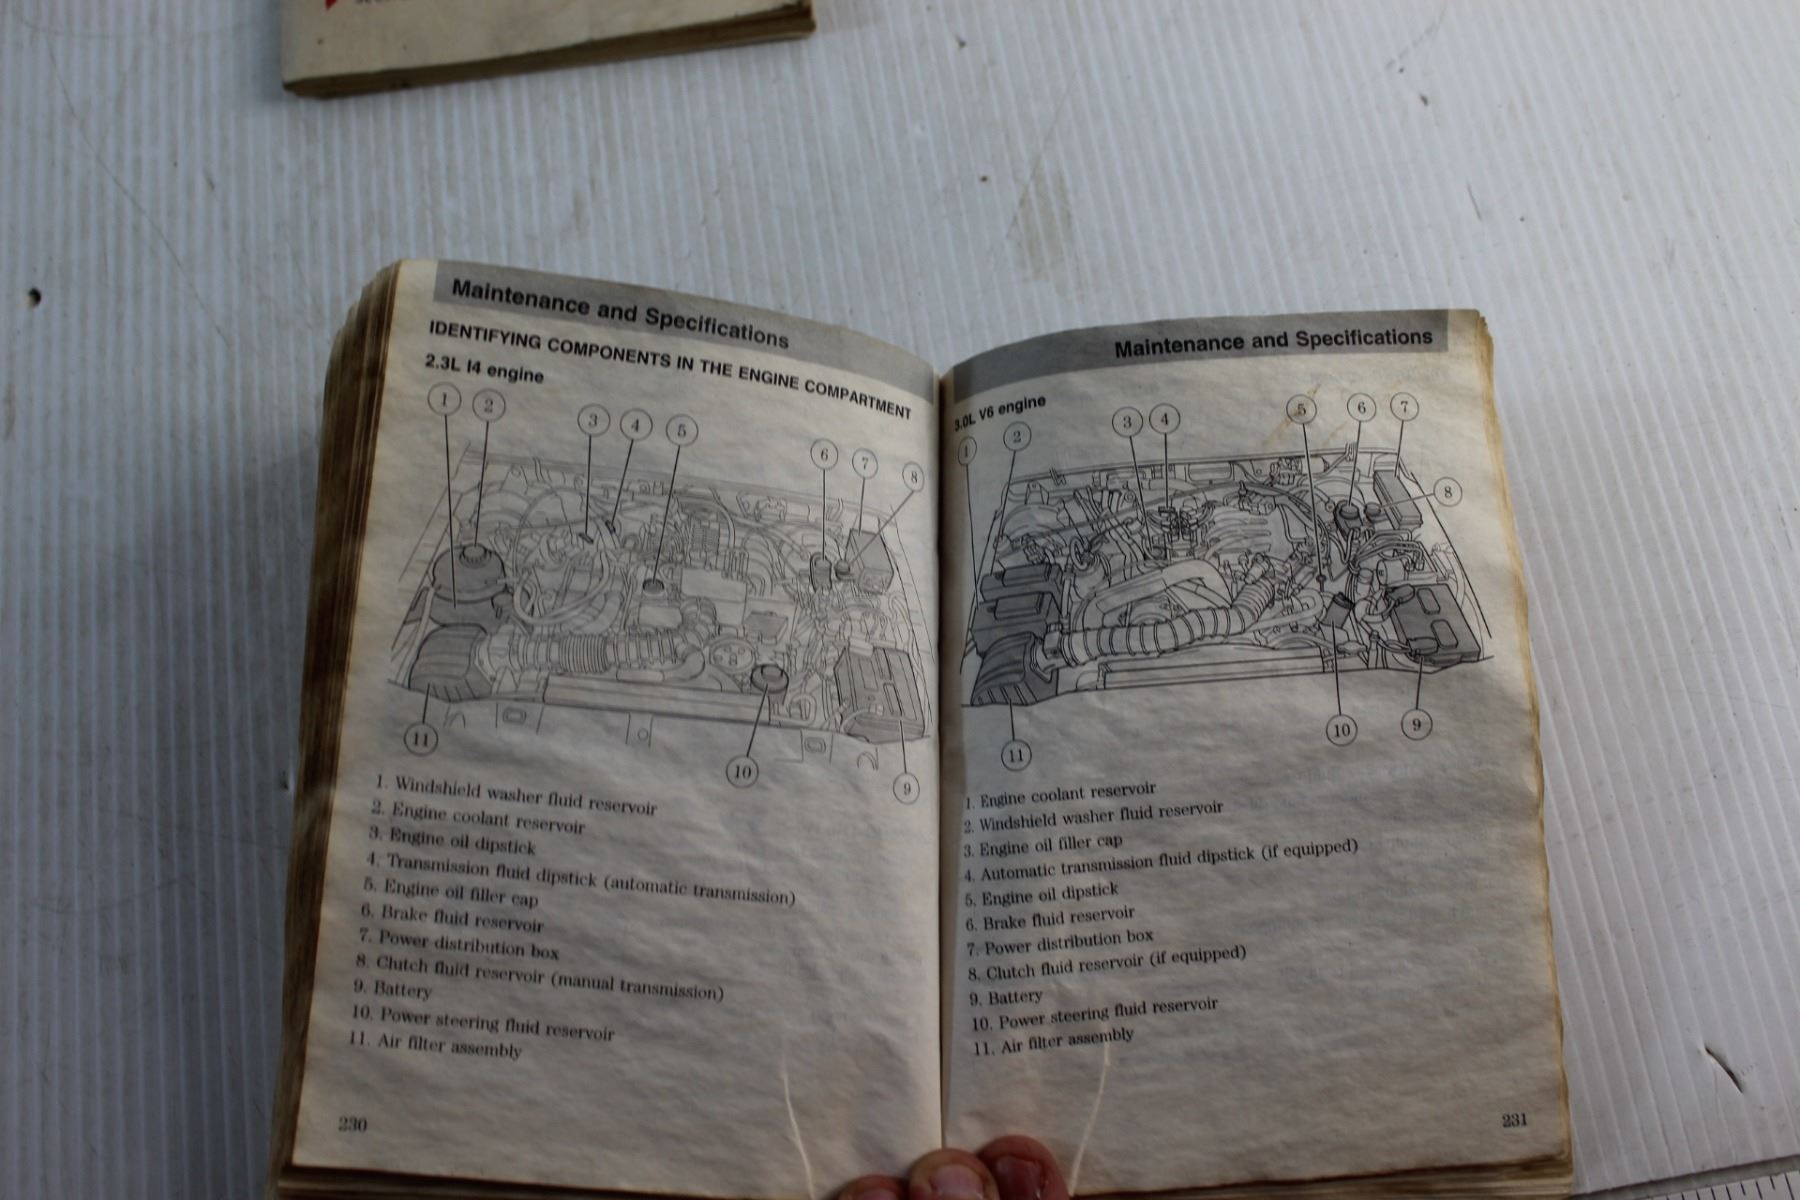 Maintenance and Specifications
IDENTIFYING COMPONENTS IN THE ENGINE COMPARTMENT
2.3L I4 engine
1 2 3 4 5 6 7 8
11 10 9
1. Windshield washer fluid reservoir
2. Engine coolant reservoir
3. Engine oil dipstick
4. Transmission fluid dipstick (automatic transmission)
5. Engine oil filler cap
6. Brake fluid reservoir
7. Power distribution box
8. Clutch fluid reservoir (manual transmission)
9. Battery
10. Power steering fluid reservoir
11. Air filter assembly
230
Maintenance and Specifications
3.0L V6 engine
1 2 3 4 5 6 7 8
11 10 9
1. Engine coolant reservoir
2. Windshield washer fluid reservoir
3. Engine oil filler cap
4. Automatic transmission fluid dipstick (if equipped)
5. Engine oil dipstick
6. Brake fluid reservoir
7. Power distribution box
8. Clutch fluid reservoir (if equipped)
9. Battery
10. Power steering fluid reservoir
11. Air filter assembly
231